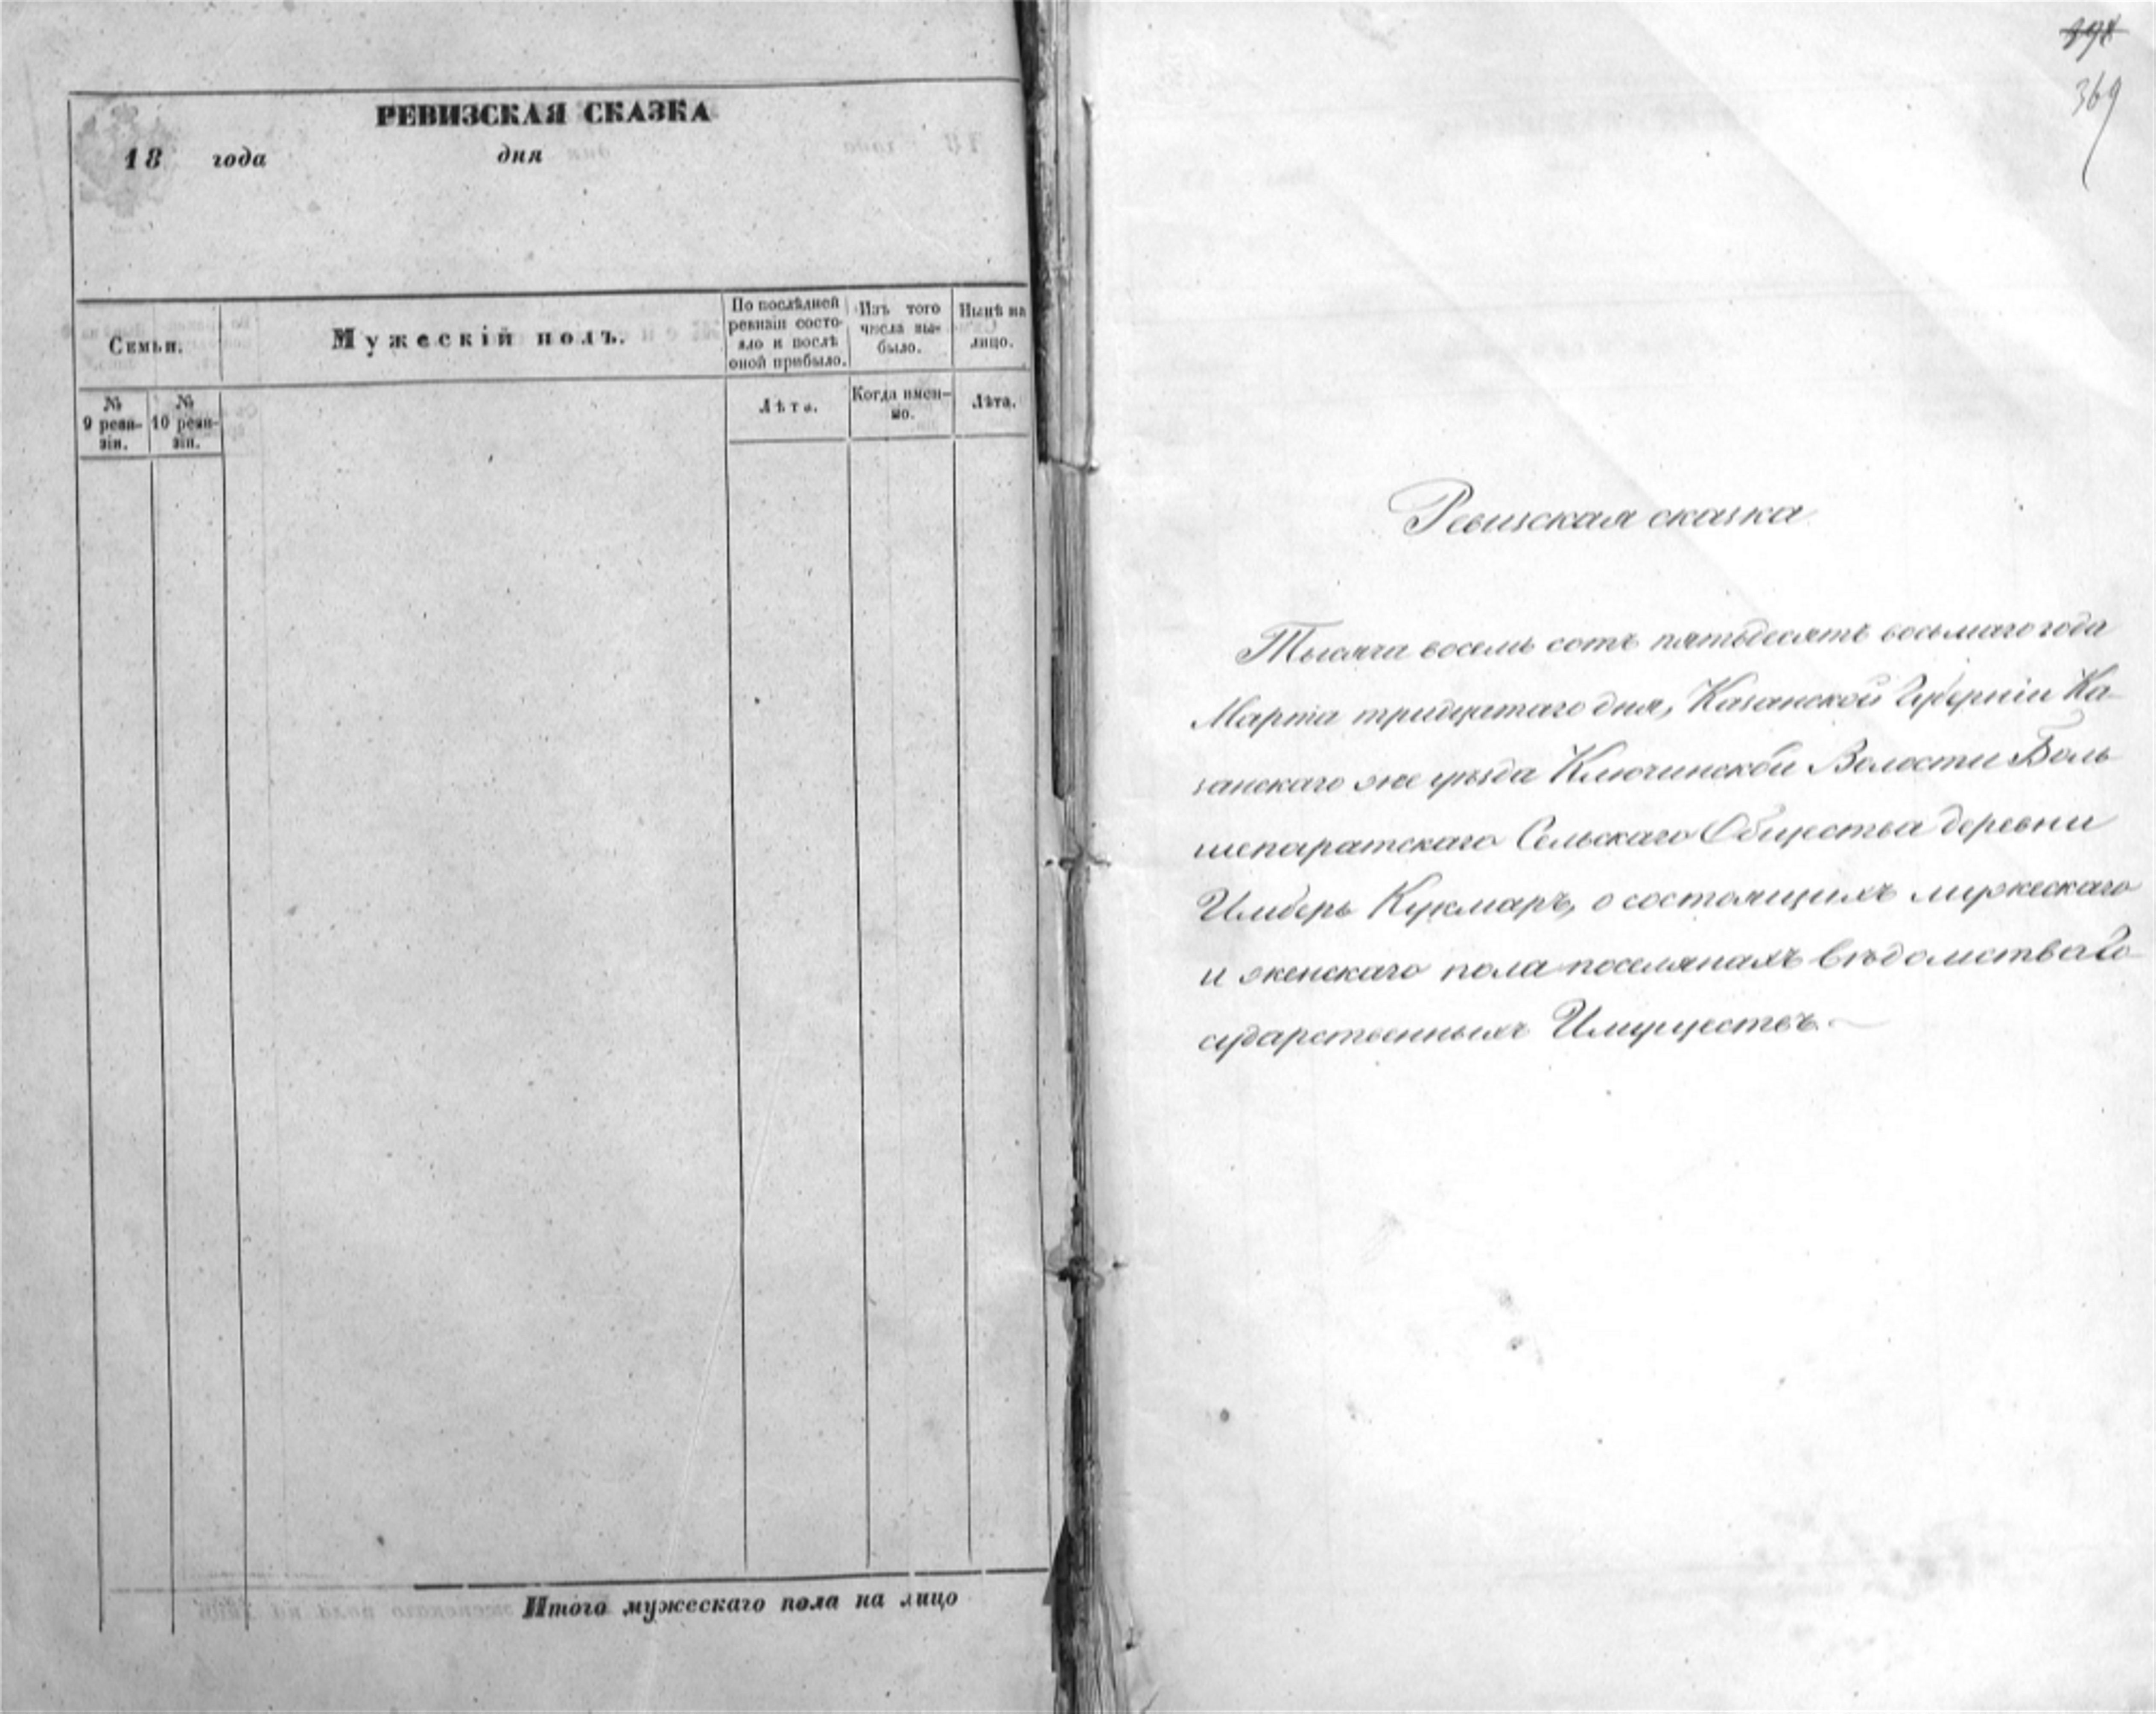 РЕВИЗСКАЯ СКАЗКА
18 года дня
Семьи.
Мужескій полъ.
По послѣдней ревизіи состо-
яло и послѣ оной прибыло.
Изъ того числа вы-
было.
Нынѣ на лицо.
№ 9 реви-
зіи.
№ 10 реви-
зіи.
Лѣта.
Когда имен-
но.
Лѣта.
Итого мужескаго пола на лицо
369
Ревизская сказка
Тысяча восемь сотъ пятьдесятъ восьмаго года
Марта тридцатаго дня, Казанской Губерніи Ка-
занскаго же уѣзда Ключинской Волости Боль
шепаратскаго Сельскаго Общества деревни
Имберь Кукмаръ, о состоящихъ мужескаго
и женскаго пола поселянахъ вѣдомства Го-
сударственныхъ Имуществъ.